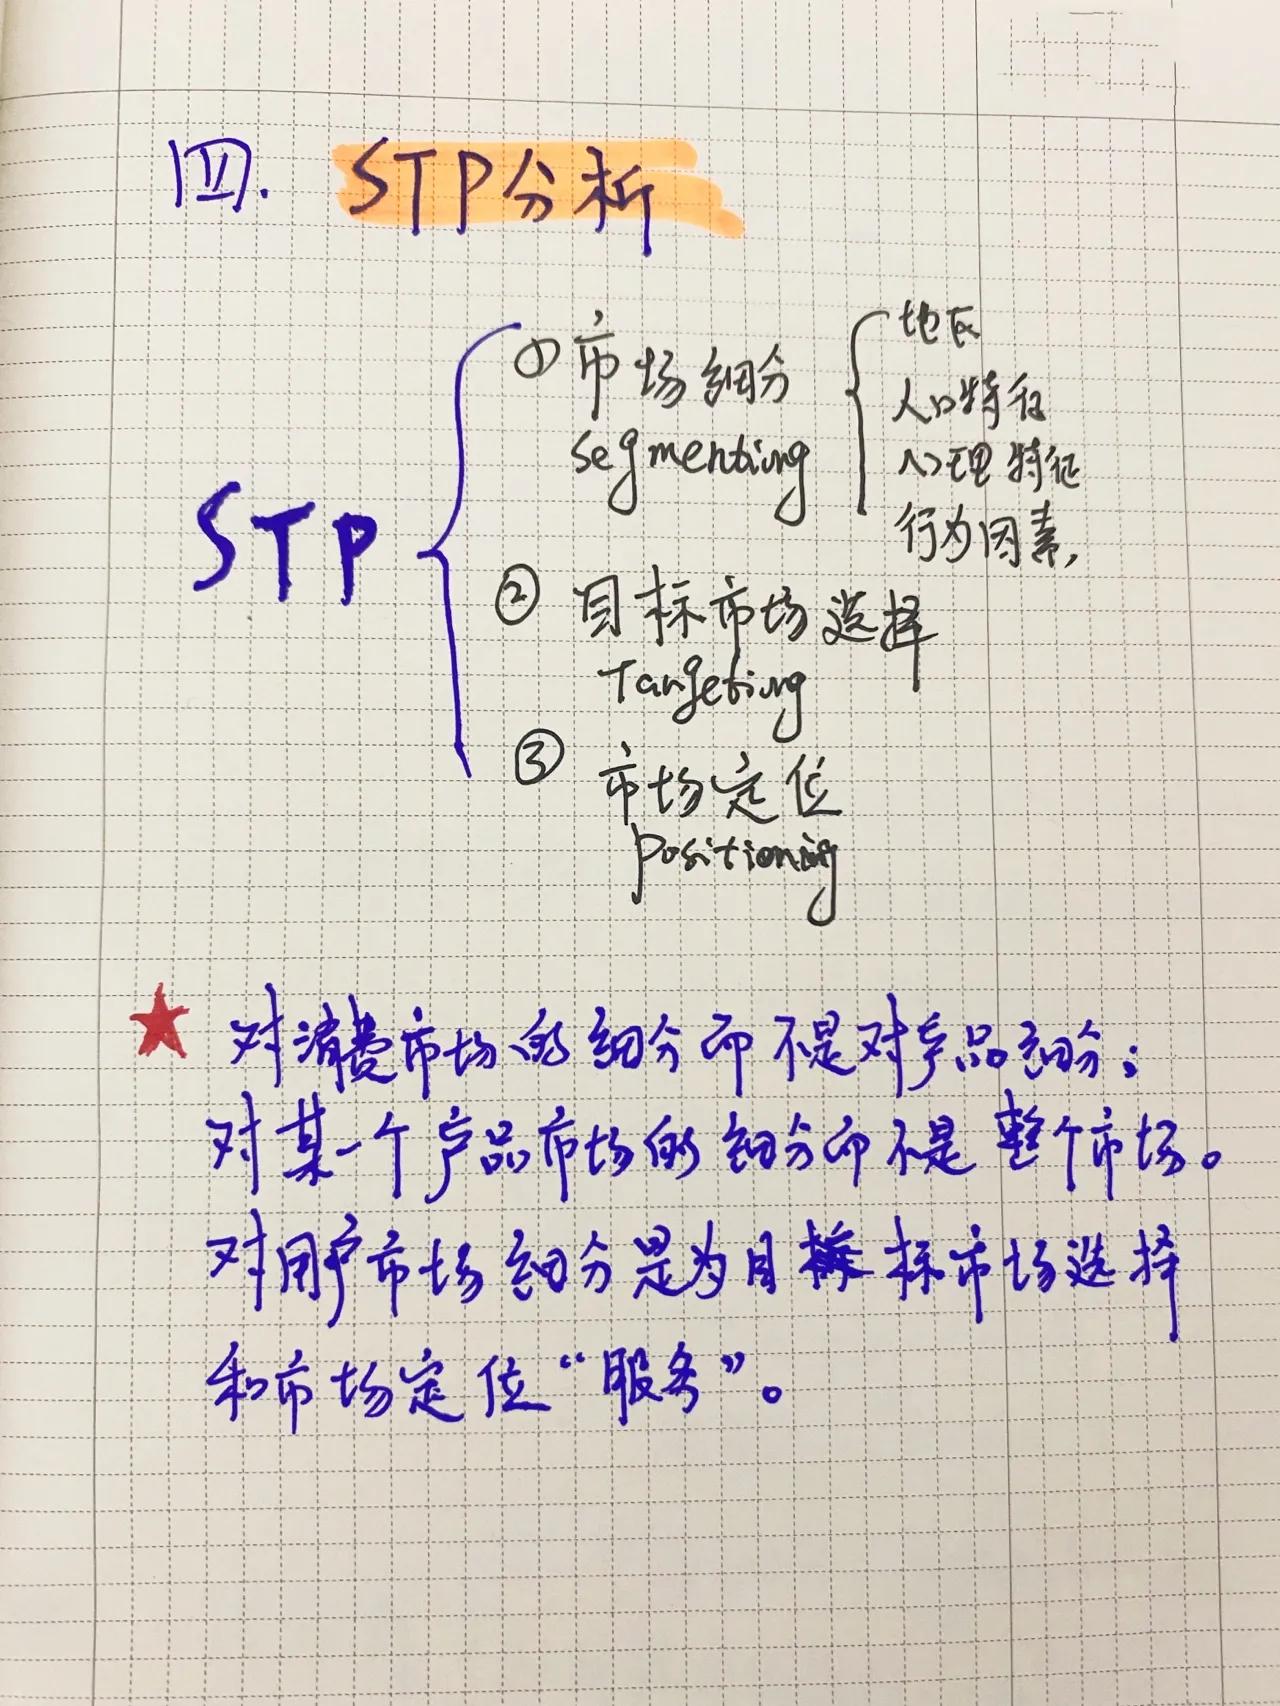 四. STP分析
STP
①市场细分
segmenting
地区
人口特征
心理特征
行为因素,
② 目标市场选择
Targeting
③ 市场定位
positioning
★ 对消费市场的细分而不是对产品细分;
对某一个产品市场的细分而不是整个市场。
对用户市场细分是为目标市场选择
和市场定位“服务”。